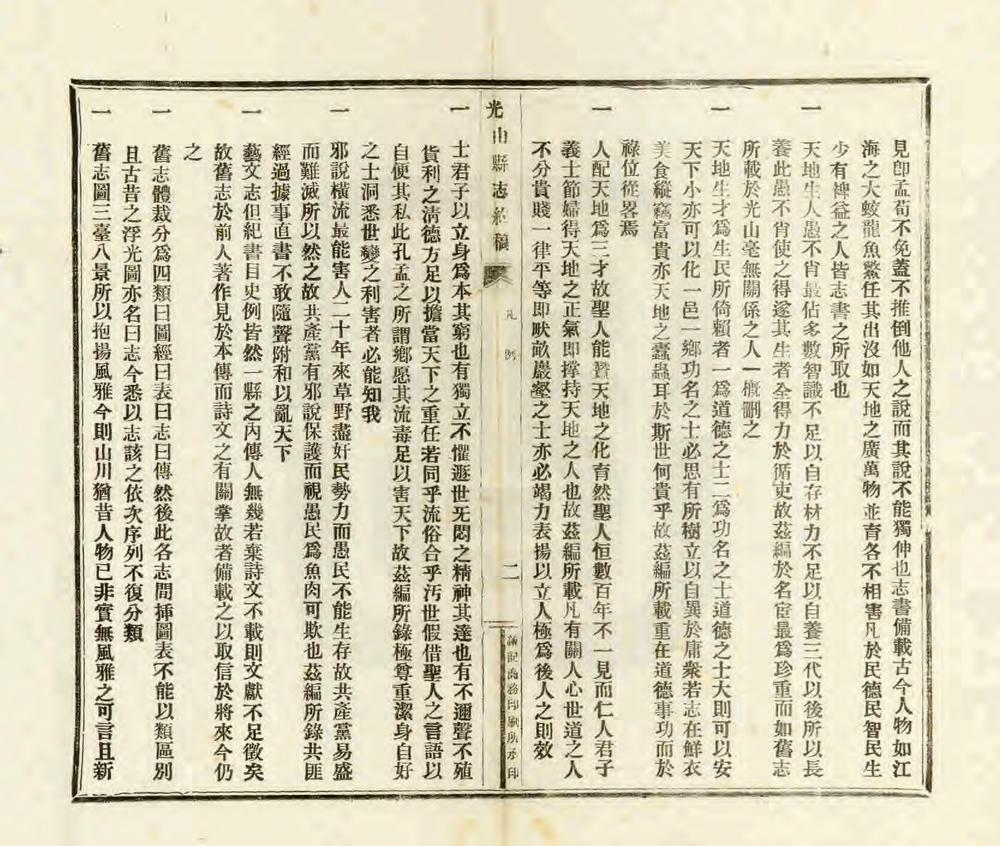 見卽孟荀不免蓋不推倒他人之說而其說不能獨伸也志書備載古今人物如江
海之大蛟龍魚鱉任其出沒如天地之廣萬物並育各不相害凡於民德民智民生
少有裨益之人皆志書之所取也
一 天地生人愚不肖最佔多數智識不足以自存材力不足以自養三代以後所以長
養此愚不肖使之得遂其生者全得力於循吏故茲編於名宦最爲珍重而如舊志
所載於光山毫無關係之人一槪删之
一 天地生才爲生民所倚賴者一爲道德之士二爲功名之士道德之士大則可以安
天下小亦可以化一邑一鄉功名之士必思有所樹立以自異於庸衆若志在鮮衣
美食縱竊富貴亦天地之蠹蟲耳於斯世何貴乎故茲編所載重在道德事功而於
祿位從畧焉
一 人配天地爲三才故聖人能贊天地之化育然聖人恒數百年不一見而仁人君子
義士節婦得天地之正氣卽撑持天地之人也故茲編所載凡有關人心世道之人
不分貴賤一律平等卽畎畝巖壑之士亦必竭力表揚以立人極爲後人之則效
光山縣志約稿
凡例
二
謙記商務印刷所承印
一 士君子以立身爲本其窮也有獨立不懼遯世旡悶之精神其達也有不邇聲不殖
貨利之淸德方足以擔當天下之重任若同乎流俗合乎汚世假借聖人之言語以
自便其私此孔孟之所謂鄕愿其流毒足以害天下故茲編所錄極尊重潔身自好
之士洞悉世變之利害者必能知我
一 邪說橫流最能害人二十年來草野盡奸民勢力而愚民不能生存故共產黨易盛
而難滅所以然之故共產黨有邪說保護而視愚民爲魚肉可欺也茲編所錄共匪
經過據事直書不敢隨聲附和以亂天下
一 藝文志但紀書目史例皆然一縣之內傳人無幾若棄詩文不載則文獻不足徵矣
故舊志於前人著作見於本傳而詩文之有關掌故者備載之以取信於將來今仍
之
一 舊志體裁分爲四類曰圖經曰表曰志曰傳然後此各志間揷圖表不能以類區別
且古昔之浮光圖亦名曰志今悉以志該之依次序列不復分類
一 舊志圖三臺八景所以抱揚風雅今則山川猶昔人物已非實無風雅之可言且新